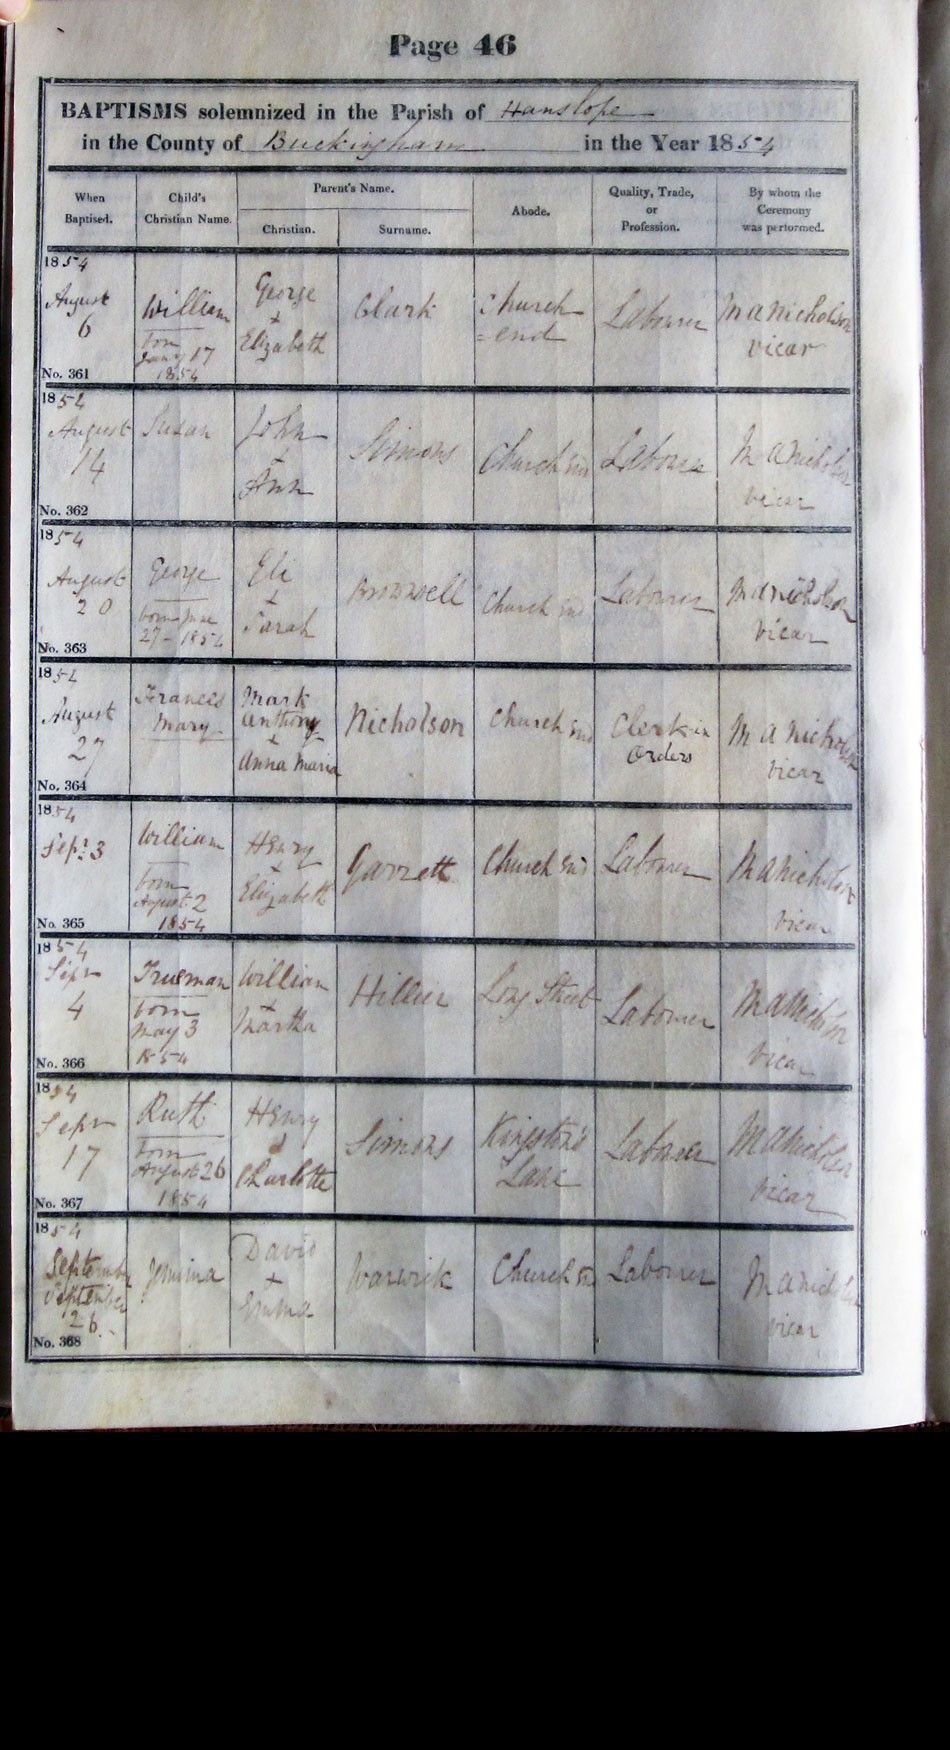 Page 46
BAPTISMS solemnized in the Parish of Hanslope
in the County of Buckingham in the Year 1854
When Baptised.
Child's Christian Name.
Parent's Name.
Christian.
Surname.
Abode.
Quality, Trade, or Profession.
By whom the Ceremony was performed.
1854
August 6
No. 361
William
born
Jany 17
1854
George
+
Elizabeth
Clark
Church
=end
Labourer
M A Nicholson
Vicar
1854
August
14
No. 362
Susan
John
+
Ann
Simons
Church End
Labourer
M A Nicholson
Vicar
1854
August
20
No. 363
George
born June
27 - 1854
Eli
+
Sarah
Church End
Labourer
M A Nicholson
Vicar
1854
August
27
No. 364
Frances
Mary
Mark
Anthony
+
Anna Maria
Nicholson
Church End
Clerk in
Orders
M A Nicholson
Vicar
1854
Sepr 3
No. 365
William
born
August 2
1854
Henry
+
Elizabeth
Garrett
Church End
Labourer
M A Nicholson
Vicar
1854
Sepr
4
No. 366
Trueman
born
May 3
1854
William
+
Martha
Hillier
Long Street
Labourer
M A Nicholson
Vicar
1854
Sepr
17
No. 367
Ruth
born
August 26
1854
Henry
&
Charlotte
Simons
Kingston's
Lane
Labourer
M A Nicholson
Vicar
1854
September
September
26
No. 368
Jemima
David
+
Emma
Warwick
Church End
Labourer
M A Nicholson
Vicar